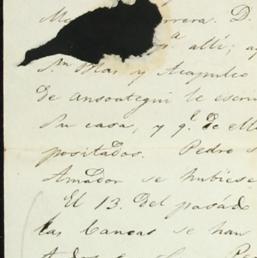 rrera. D.
a
allí; ay
Sn. Blas y Acapulco
de ansoategui le escri
su casa, y q.e de ell
positados. Pedro s
Amador se hubiese
El 13. del pasad
las Canoas se han